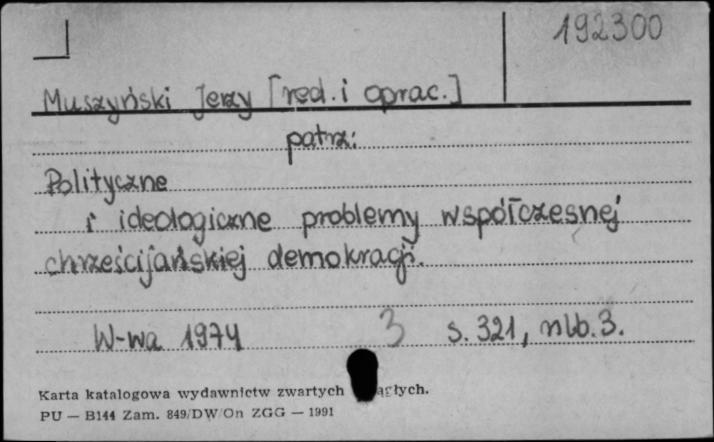 192300
Muszyński Jerzy [red. i oprac.]
patrz:
Polityczne
i ideologiczne problemy współczesnej
chrześcijańskiej demokracji.
W-wa 1974 3 s. 321, nlb. 3.
Karta katalogowa wydawnictw zwartych
PU — B144 Zam. 849/DW/On ZGG — 1991